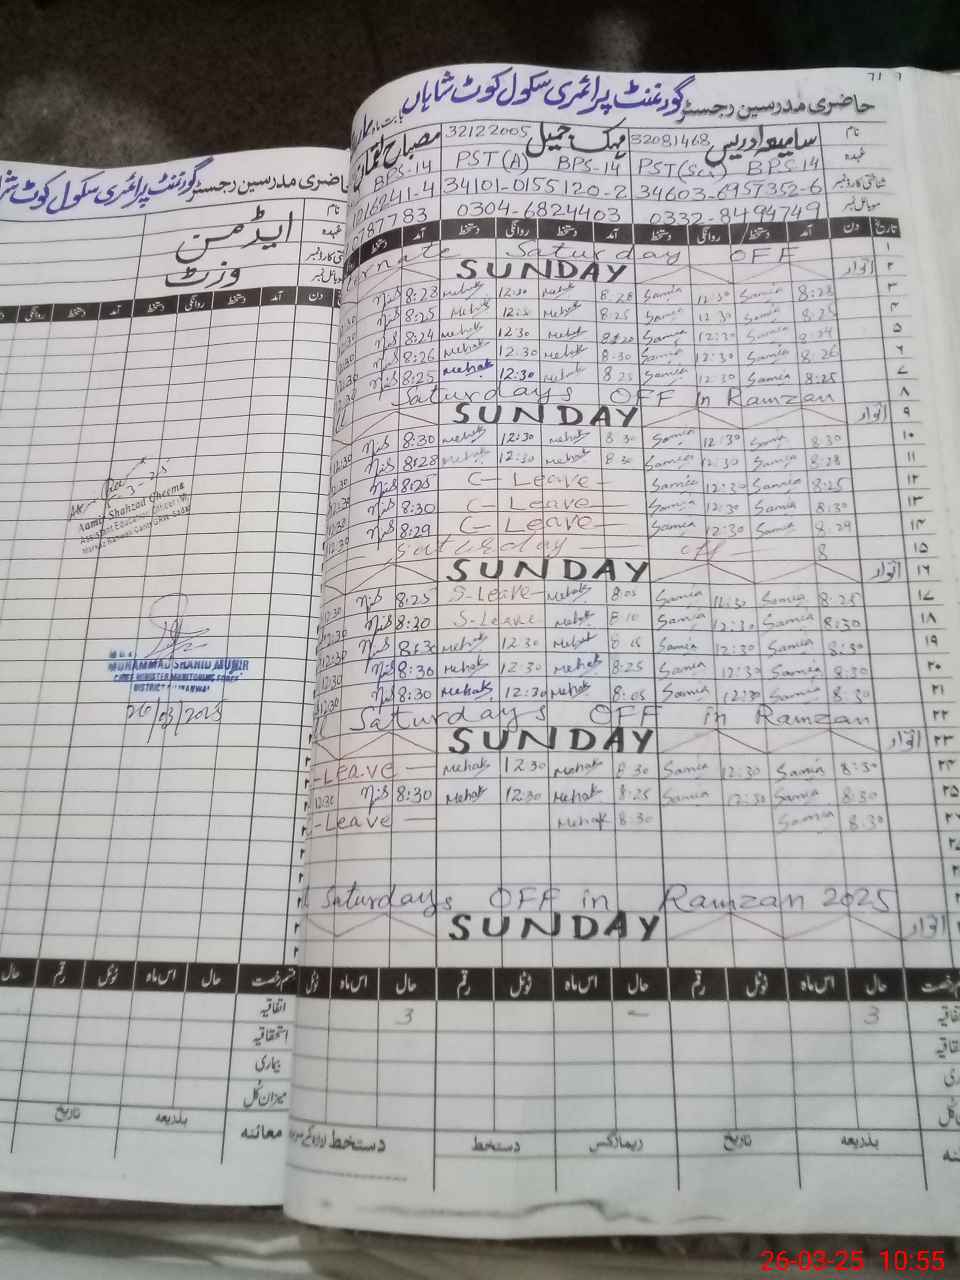 حاضری مدرسین رجسٹر گورنمنٹ پرائمری سکول کوٹ شاہاں
نام سامیعہ ادریس 32081468 مہک جمیل 32122005 مصباح
عہدہ BPS-14 PST(Sci) BPS-14 PST(A) BPS-14
شناختی کارڈ نمبر 34603-6957352-6 34101-0155120-2 016241-4
موبائل نمبر 0332-8494749 0304-6824403 0787783
تاریخ دن آمد دستخط روانگی دستخط آمد دستخط روانگی دستخط آمد دستخط
۱ ernate Saturday OFF
۲ اتوار SUNDAY
۳ 8:28 Samia 12:30 Samia 8:28 Mehak 12:30 Mehak 8:28
۴ 8:25 Samia 12:30 Samia 8:25 Mehak 12:30 Mehak 8:25
۵ 8:24 Samia 12:30 Samia 8:20 Mehak 12:30 Mehak 8:24
۶ 8:26 Samia 12:30 Samia 8:30 Mehak 12:30 Mehak 8:26
۷ 8:25 Samia 12:30 Samia 8:25 Mehak 12:30 Mehak 8:25
۸ Saturdays OFF in Ramzan
۹ اتوار SUNDAY
۱۰ 8:30 Samia 12:30 Samia 8:30 Mehak 12:30 Mehak 8:30
۱۱ 8:28 Samia 12:30 Samia 8:30 Mehak 12:30 Mehak 8:28
۱۲ 8:25 Samia 12:30 Samia C-Leave 8:25
۱۳ 8:30 Samia 12:30 Samia C-Leave 8:30
۱۴ 8:29 Samia 12:30 Samia C-Leave 8:29
۱۵ Saturday off
۱۶ اتوار SUNDAY
۱۷ 8:25 Samia 12:30 Samia 8:05 Mehak S-Leave 8:25
۱۸ 8:30 Samia 12:30 Samia 8:10 Mehak S-Leave 8:20
۱۹ 8:30 Samia 12:30 Samia 8:15 Mehak 12:30 Mehak 8:30
۲۰ 8:30 Samia 12:30 Samia 8:25 Mehak 12:30 Mehak 8:30
۲۱ 8:30 Samia 12:30 Samia 8:05 Mehak 12:30 Mehak 8:30
۲۲ Saturdays OFF in Ramzan
۲۳ اتوار SUNDAY
۲۴ 8:30 Samia 12:30 Samia 8:30 Mehak 12:30 Mehak -Leave
۲۵ 8:30 Samia 12:30 Samia 8:25 Mehak 12:30 Mehak 8:30 12:30
8:30 Samia 8:30 Mehak -Leave
Saturdays OFF in Ramzan 2025
اتوار SUNDAY
حال اس ماہ ٹوٹل رقم حال اس ماہ ٹوٹل رقم حال اس ماہ ٹوٹل
3 3
بذریعہ تاریخ ریمارکس دستخط دستخط
حاضری مدرسین رجسٹر گورنمنٹ پرائمری سکول کوٹ
نام ایڈمن
عہدہ وزٹ
موبائل نمبر
دن آمد دستخط روانگی دستخط آمد دستخط روانگی
Aamir Shahzad Cheema
Assistant Education Officer
MUHAMMAD SHAHID MUNIR
CHIEF MINISTER MONITORING FORCE
DISTRICT
26/03/2025
قسم رخصت حال اس ماہ ٹوٹل رقم حال
اتفاقیہ
استحقاقیہ
بیماری
میزان کل
معائنہ بذریعہ تاریخ
26-03-25 10:55